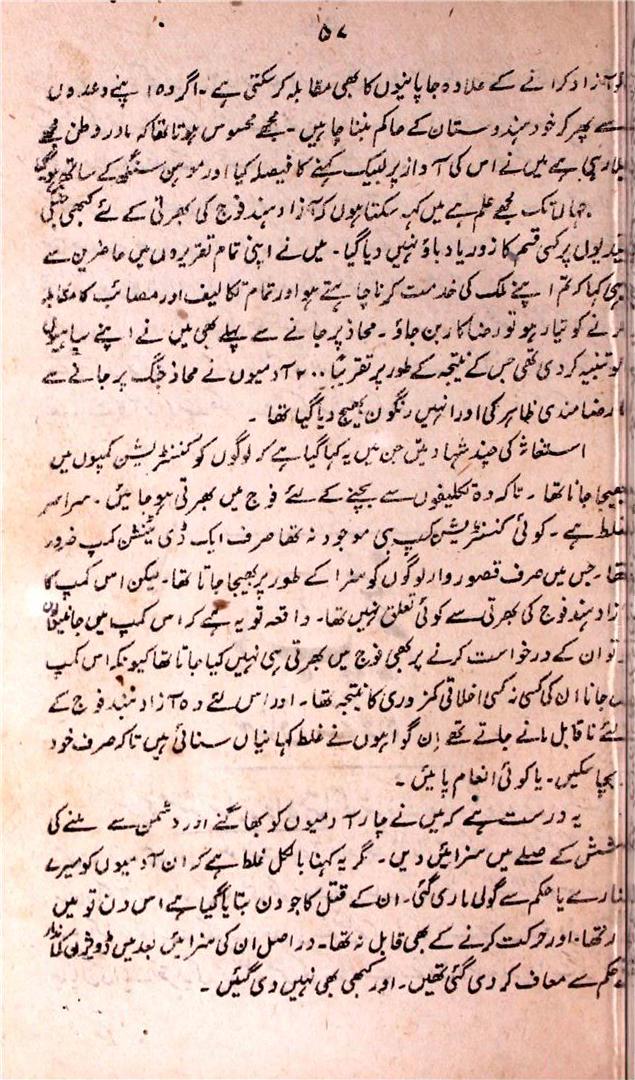 ۵۷
آزاد کرانے کے علاوہ جاپانیوں کا بھی مقابلہ کر سکتی ہے ۔ اگر وہ اپنے وعدوں
سے پھر کر خود ہندوستان کے حاکم بننا چاہیں ۔ مجھے محسوس ہوتا تھا کہ مادر وطن مجھے
بلا رہی ہے میں نے اس کی آواز پر لبیک کہنے کا فیصلہ کیا اور موہن سنگھ کے ساتھ ہو گیا
جہاں تک مجھے علم ہے میں کہہ سکتا ہوں کہ آزاد ہند فوج کی بھرتی کے لئے کبھی جنگی
قیدیوں پر کسی قسم کا زور یا دباؤ نہیں دیا گیا ۔ میں نے اپنی تمام تقریروں میں حاضرین سے
یہی کہا کہ تم اپنے ملک کی خدمت کرنا چاہتے ہو اور تمام تکالیف اور مصائب کا مقابلہ
کرنے کو تیار ہو تو رضاکار بن جاؤ ۔ محاذ پر جانے سے پہلے بھی میں نے اپنے سپاہیوں
کو تنبیہ کر دی تھی جس کے نتیجہ کے طور پر تقریباً ۲۰۰ آدمیوں نے محاذ جنگ پر جانے سے
نا رضا مندی ظاہر کی اور انہیں رنگون بھیج دیا گیا تھا ۔
استغاثہ کی چند شہادتیں جن میں یہ کہا گیا ہے کہ لوگوں کو کنسنٹریشن کمپوں میں
بھیجا جاتا تھا ۔ تاکہ وہ تکلیفوں سے بچنے کے لئے فوج میں بھرتی ہو جائیں ۔ سراسر
غلط ہے ۔ کوئی کنسنٹریشن کمپ ہی موجود نہ تھا صرف ایک ڈی ٹینشن کمپ ضرور
تھا ۔ جس میں صرف قصوروار لوگوں کو سزا کے طور پر بھیجا جاتا تھا ۔ لیکن اس کمپ کا
آزاد ہند فوج کی بھرتی سے کوئی تعلق نہیں تھا ۔ واقعہ تو یہ ہے کہ اس کمپ میں جانیوالوں
کو ان کے درخواست کرنے پر بھی فوج میں بھرتی ہی نہیں کیا جاتا تھا کیونکہ اس کمپ
میں جانا ان کی کسی نہ کسی اخلاقی کمزوری کا نتیجہ تھا ۔ اور اس لئے وہ آزاد ہند فوج کے
لئے ناقابل مانے جاتے تھے اِن گواہوں نے غلط کہانیاں سنائی ہیں تاکہ صرف خود
بچا سکیں ۔ یا کوئی انعام پائیں ۔
یہ درست ہے کہ میں نے چار آدمیوں کو بھاگنے اور دشمن سے ملنے کی
کوشش کے صلے میں سزائیں دیں ۔ مگر یہ کہنا بالکل غلط ہے کہ ان آدمیوں کو میرے
اشارے یا حکم سے گولی ماری گئی ۔ ان کے قتل کا جو دن بتایا گیا ہے اس دن تو میں
بیمار تھا ۔ اور حرکت کرنے کے بھی قابل نہ تھا ۔ در اصل ان کی سزائیں بعد میں ڈویژنل کمانڈر
کے حکم سے معاف کر دی گئی تھیں ۔ اور کبھی بھی نہیں دی گئیں ۔